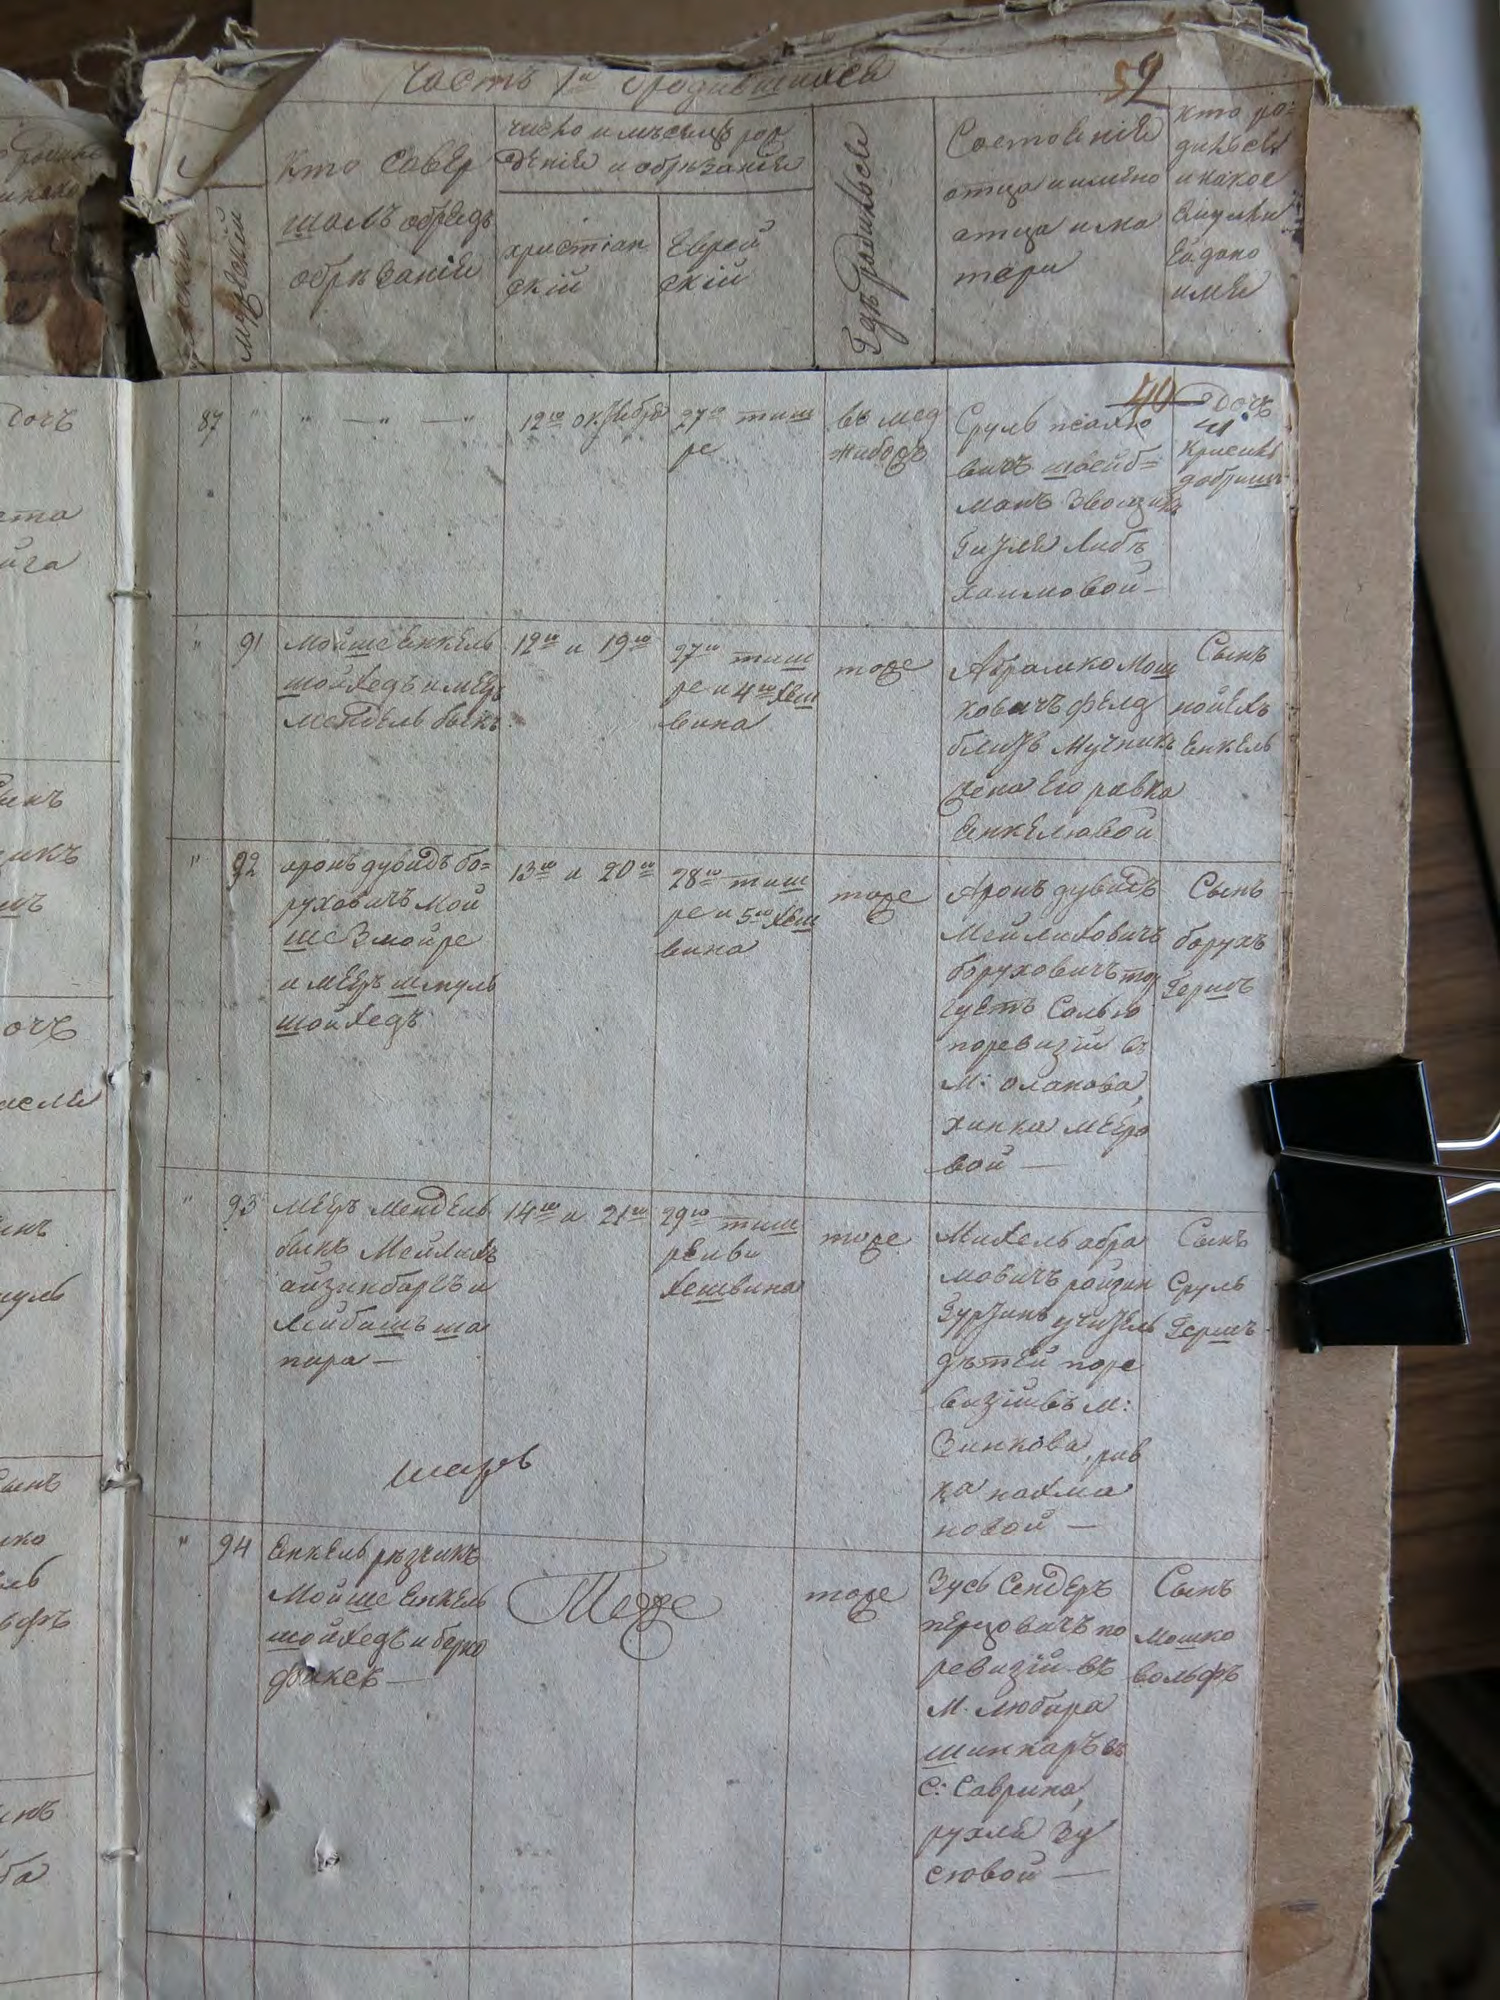 Часть 1я о родившихся
52
Женскій
Мужескій
Кто совер
шалъ обрядъ
обрѣзанія
число и мѣсяцъ рож
денія и обрѣзанія
христіан
скій
Еврей
скій
Гдѣ родился
Состояніе
отца и имяно
отца и ма
тери
кто ро=
дился
и какое
Ему или
Ей дано
имя
87 " " — " —
12го октября
27го тиш
ре
въ мед
жибожѣ
40
Сруль
вичъ швейб=
манъ
Гитля Либъ
хаимовой —
Дочь
41
" 91
Мойше Енкель
шойхедъ и меер
Мендель быкъ
12го и 19го
27го тиш
ре и 4го хеш
вина
тоже
Абрамко Мош
ковичъ фелд
блитъ мучникъ
жена Его равка
Енкелювой
Сынъ
нойехъ
Енкель
" 92
аронъ дувидъ бо=
руховичъ мой
ше Змойре
и меер шмуль
шойхедъ
13го и 20го
28го тиш
ре и 5го хеш
вина
тоже
Аронъ дувидъ
Мейлиховичъ
боруховичъ тор
гуетъ Солью
поревизіи въ
М:
хинка мееро
вой —
Сынъ
борухъ
Гершъ
" 93
Меер Мендель
быкъ Мейлихъ
айзинбаргъ и
Лейбишъ ша
пира —
14го и 21го
29го тиш
ре и ви
хешвина
тоже
Михель абра
мовичъ ройзин
гуртинъ учитель
дѣтей поре
визіи въ м:
Зинкова, рив
ка нахма
новой —
Сынъ
Сруль
Гершъ
" 94
Енкель рѣзникъ
Мойше Енкель
шойхедъ и берко
фуксъ —
Тоже
тоже
Зусь Сендеръ
перцовичъ по
ревизіи въ
м. любара
шинкаръ въ
с: Саврина,
рухля Зу
сювой —
Сынъ
мошко
вольфъ